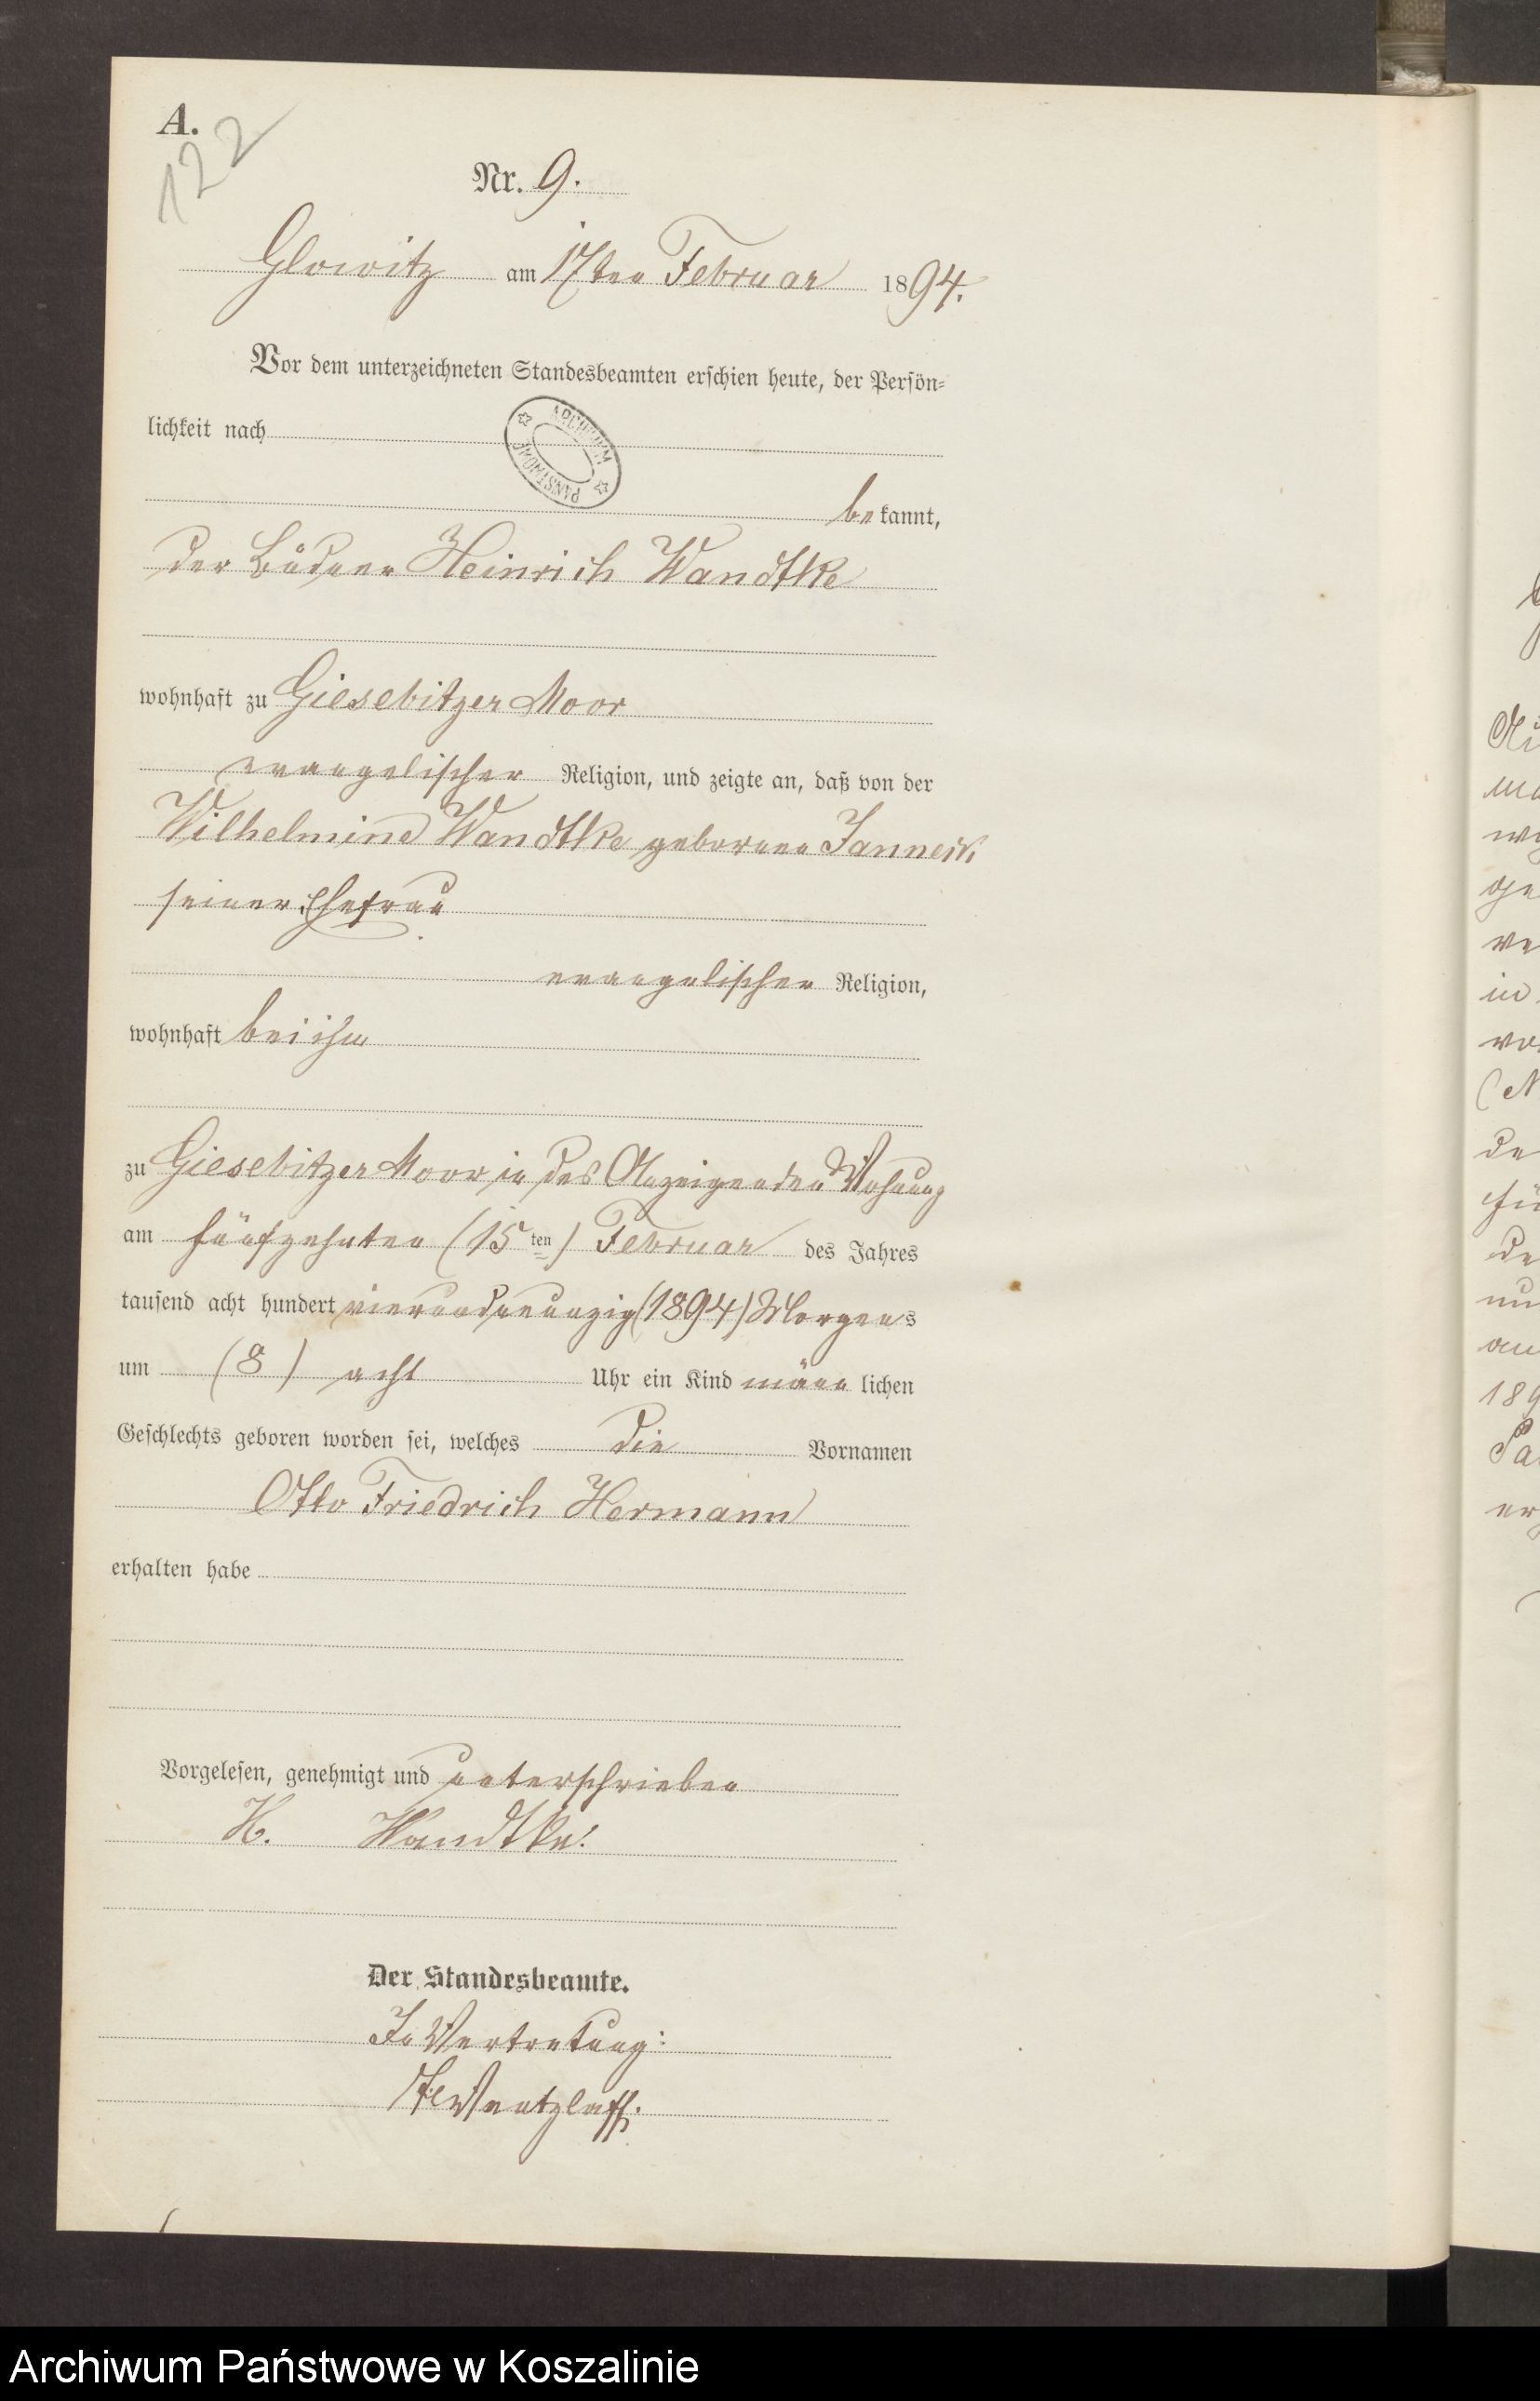 A.
122
Nr. 9.
Glowitz am 17ten Februar 1894.
Vor dem unterzeichneten Standesbeamten erschien heute, der Persön-
lichkeit nach
ARCHIWUM PAŃSTWOWE
bekannt,
der Büdner Heinrich Wandtke
wohnhaft zu Giesebitzer Moor
evangelischer Religion, und zeigte an, daß von der
Wilhelmine Wandtke geborenen Janneck
seiner Ehefrau
evangelischer Religion,
wohnhaft bei ihm
zu Giesebitzer Moor in des Anzeigenden Wohnung
am fünfzehnten (15ten) Februar des Jahres
tausend acht hundert vierundneunzig (1894) Morgens
um (8) acht Uhr ein Kind männlichen
Geschlechts geboren worden sei, welches die Vornamen
Otto Friedrich Hermann
erhalten habe
Vorgelesen, genehmigt und unterschrieben
H. Wandtke.
Der Standesbeamte.
In Vertretung:
Wentzlaff.
Archiwum Państwowe w Koszalinie